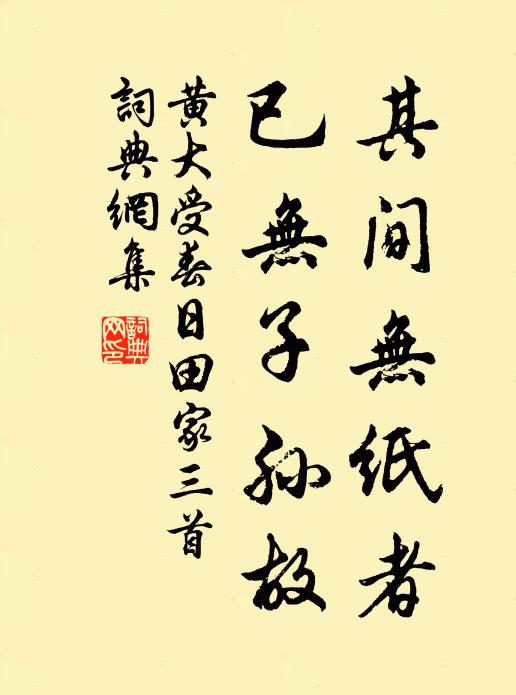 其間無紙者
已無子孫故
黃大受春日田家三首
詞典網集
詞典網印